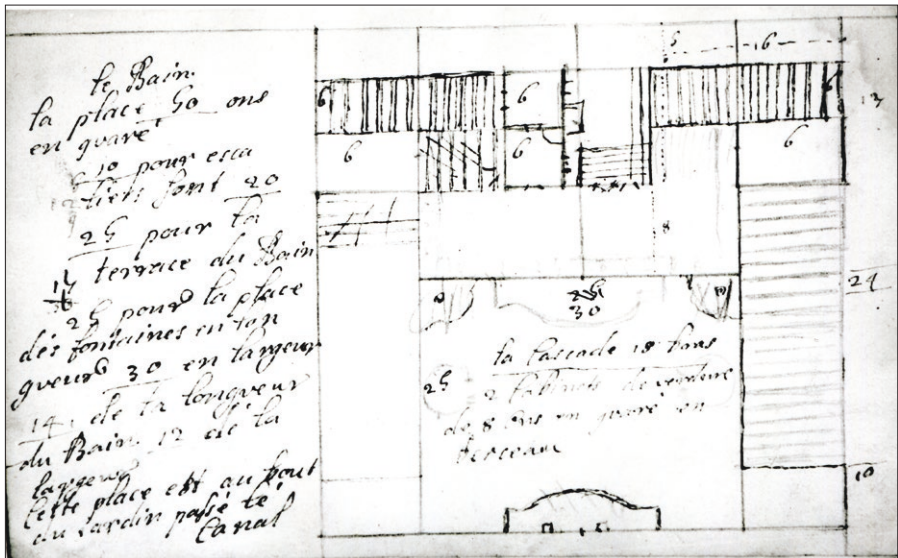 le Bain.
la place 50 ons
en quaré
10 pour esca
liers font 20
25 pour la
terrace du Bain
25 pour la place
des fontaines en lon
gueur 30 en largeur
14. de la longueur
du Bain. 12 de la
largeur
Cette place est au bout
du Jardin passé le
Canal
5 16
6 6 6
13
6 6 6
8
24
30
la Cascade 18 hons
25
2 Cabinets de verdure
de 8 ons en quaré en
berceau
10